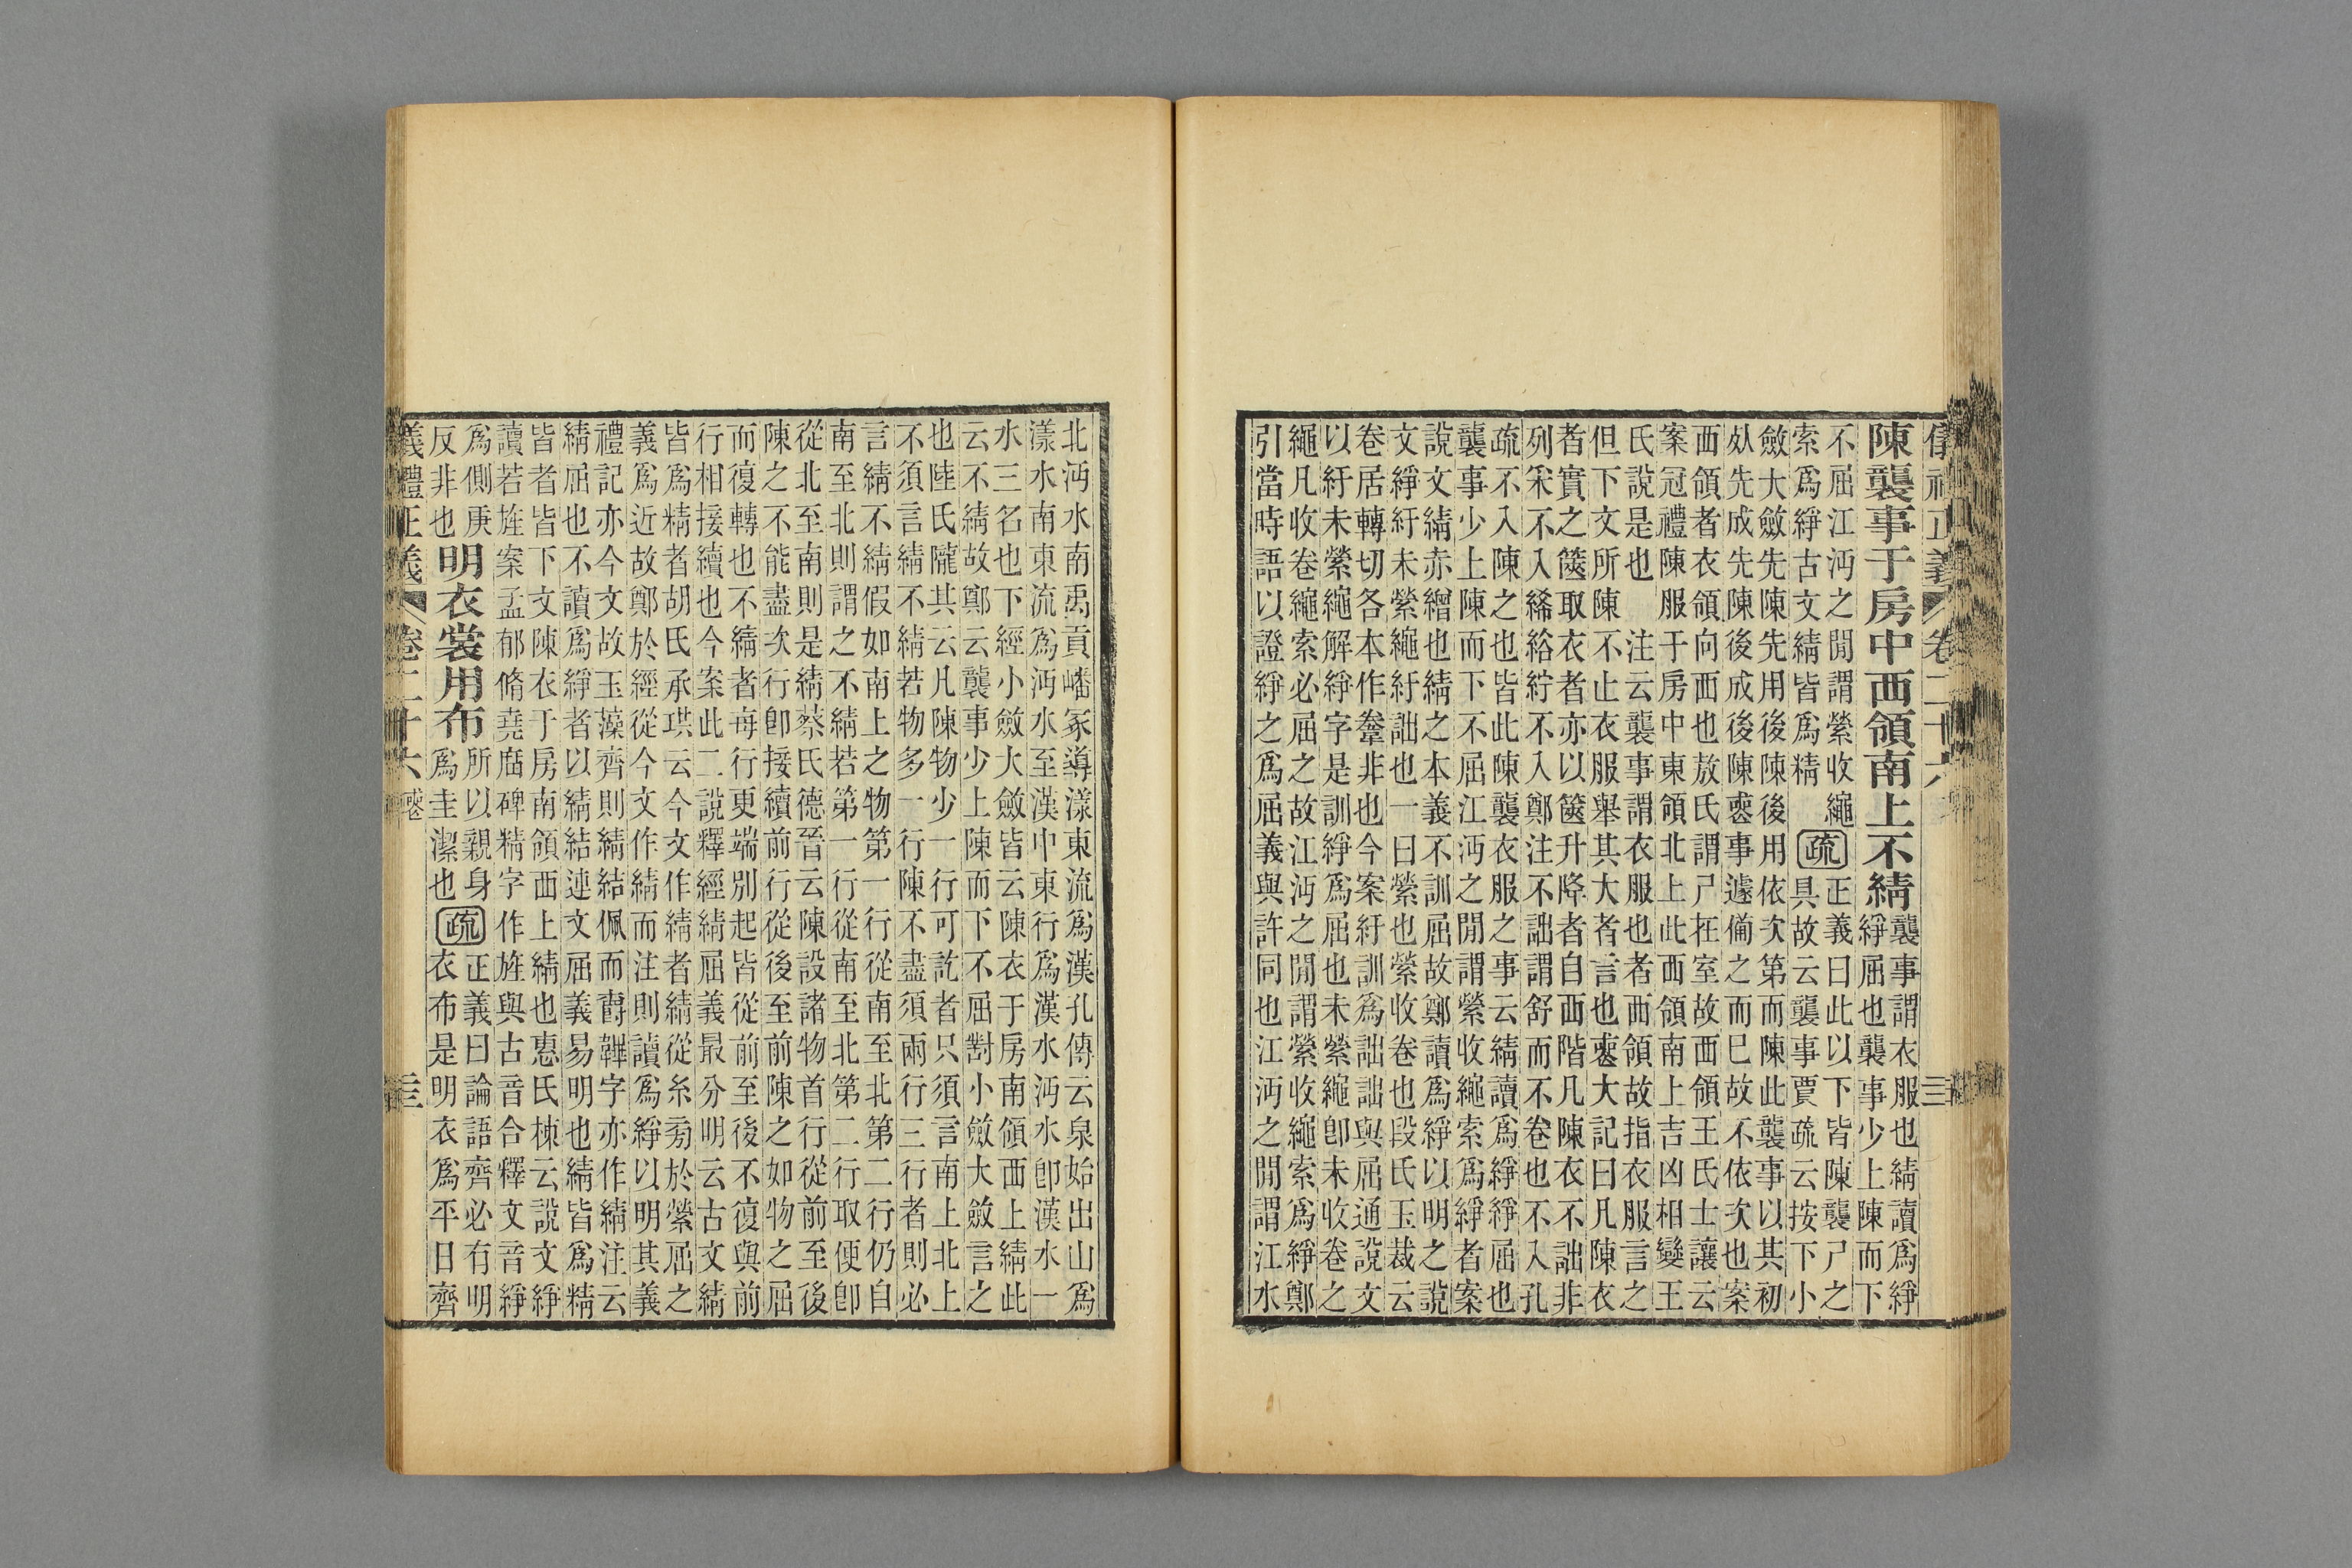 儀禮正義 卷二十六 三
陳襲事于房中西領南上不綪 襲事謂衣服也綪讀爲䋫
䋫屈也襲事少上陳而下
不屈江沔之閒謂縈收繩
索爲䋫古文綪皆爲精 疏 正義曰此以下皆陳襲尸之
具故云襲事賈疏云按下小
斂大斂先陳先用後陳後用依次第而陳此襲事以其初
死先成先陳後成後陳喪事遽備之而已故不依次也案
西領者衣領向西也敖氏謂尸在室故西領王氏士讓云
案冠禮陳服于房中東領北上此西領南上吉凶相變王
氏說是也 注云襲事謂衣服也者西領故指衣服言之
但下文所陳不止衣服舉其大者言也喪大記曰凡陳衣
者實之篋取衣者亦以篋升降者自西階凡陳衣不詘非
列采不入絺綌紵不入鄭注不詘謂舒而不卷也不入孔
疏不入陳之也皆此陳襲衣服之事云綪讀爲䋫䋫屈也
襲事少上陳而下不屈江沔之閒謂縈收繩索爲䋫者案
說文綪赤繒也綪之本義不訓屈故鄭讀爲䋫以明之說
文䋫紆未縈繩紆詘也一曰縈也縈收卷也段氏玉裁云
卷居轉切各本作韏非也今案紆訓爲詘詘與屈通說文
以紆未縈繩解䋫字是訓䋫爲屈也未縈繩卽未收卷之
繩凡收卷繩索必屈之故江沔之閒謂縈收繩索爲䋫鄭
引當時語以證䋫之爲屈義與許同也江沔之閒謂江水
北沔水南禹貢嶓冢導漾東流爲漢孔傳云泉始出山爲
漾水南東流爲沔水至漢中東行爲漢水沔水卽漢水一
水三名也下經小斂大斂皆云陳衣于房南領西上綪此
云不綪故鄭云襲事少上陳而下不屈對小斂大斂言之
也陸氏隴其云凡陳物少一行可訖者只須言南上北上
不須言綪不綪若物多一行陳不盡須兩行三行者則必
言綪不綪假如南上之物第一行從南至北第二行仍自
南至北則謂之不綪若第一行從南至北第二行取便卽
從北至南則是綪蔡氏德晉云陳設諸物首行從前至後
陳之不能盡次行卽接續前行從後至前陳之如物之屈
而復轉也不綪者每行更端別起皆從前至後不復與前
行相接續也今案此二說釋經綪屈義最分明云古文綪
皆爲精者胡氏承珙云今文作綪者綪從糸旁於縈屈之
義爲近故鄭於經從今文作綪而注則讀爲䋫以明其義
禮記亦今文故玉藻齊則綪結佩而爵韠字亦作綪注云
綪屈也不讀爲䋫者以綪結連文屈義易明也綪皆爲精
皆者皆下文陳衣于房南領西上綪也惠氏棟云說文䋫
讀若旌案孟郁脩堯廟碑精字作旌與古音合釋文音䋫
爲側庚
反非也 明衣裳用布 所以親身
爲圭潔也 疏 正義曰論語齊必有明
衣布是明衣爲平日齊
義禮正義 卷二十六 喪 三